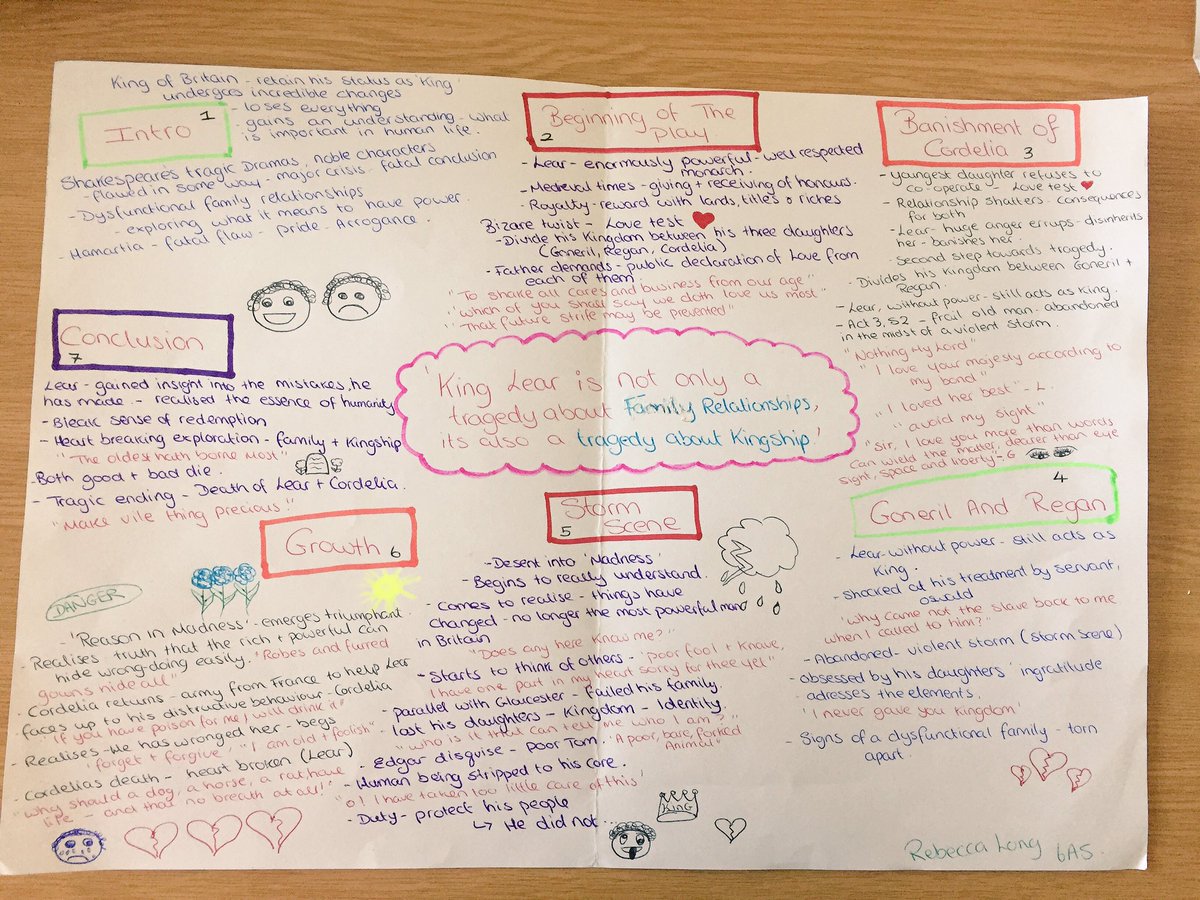 King of Britain - retain his status as 'King'
undergoes incredible changes
Intro 1
- loses everything
- gains an understanding - what
is important in human life.
Shakespeares tragic Dramas, noble characters
- flawed in some way - major crisis - fatal conclusion
- Dysfunctional family relationships
- exploring what it means to have power.
- Hamartia - fatal flaw - pride - Arrogance.
Beginning of The
Play
2
- Lear - enormously powerful - well respected
monarch.
- Medieval times - giving + receiving of honours.
- Royalty - reward with lands, titles & riches
Bizare twist - Love test
- Divide his Kingdom between his three daughters
(Goneril, Regan, Cordelia)
- Father demands - public declaration of Love from
each of them.
"To shake all cares and business from our age"
"which of you shall say we doth love us most"
"That future strife may be prevented"
Banishment of
Cordelia 3
- Youngest daughter refuses to
co-operate - Love test
- Relationship shatters - consequences
for both
- Lear - huge anger errups - disinherits
her - banishes her.
- Second step towards tragedy.
- Divides his Kingdom between Goneril +
Regan.
- Lear, without power - still acts as King.
- Act 3, S2 - frail old man - abandoned
in the midst of a violent storm.
"Nothing My Lord"
"I love your majesty according to
my bond"
"I loved her best" - L.
"avoid my sight"
"Sir, I love you more than words
Can wield the matter, dearer than eye
sight, space and liberty" - G
'King Lear is not only a
tragedy about Family Relationships,
its also a tragedy about Kingship.'
4
Goneril And Regan
- Lear - without power - still acts as
King.
- shocked at his treatment by servant,
oswald
'Why came not the slave back to me
when I called to him?"
- Abandoned - violent storm (storm scene)
- obsessed by his daughters' ingratitude
adresses the elements.
'I never gave you Kingdom'
- Signs of a dysfunctional family - torn
apart.
Storm
Scene
5
- Desent into 'Madness'
- Begins to really understand.
- Comes to realise - things have
changed - no longer the most powerful man
in Britain
"Does any here know me?"
- Starts to think of others - 'poor fool + knave,
I have one part in my heart sorry for thee yet"
- parallel with Gloucester - failed his family.
- last his daughters - Kingdom - Identity.
"who is it that can tell me who I am?"
- Edgar disguise - poor Tom. "A poor, bare, forked
Animal"
- Human being stripped to his core.
"O! I have taken too little care of this'
- Duty - protect his people
↳ He did not...
KING
Growth 6
DANGER
- 'Reason in Madness' - emerges triumphant.
- Realises truth that the rich + powerful can
hide wrong-doing easily. "Robes and furred
gowns hide all"
- Cordelia returns - army from France to help Lear
faces up to his distructive behaviour - Cordelia
"If you have poison for me, I will drink it"
- Realises - He has wronged her - begs
'forget + forgive', "I am old + foolish"
- Cordelias death - heart broken (Lear)
"why should a dog, a horse, a rat have
life - and thou no breath at all!"
Conclusion
7
Lear - gained insight into the mistakes he
has made - realised the essence of humanity
- Bleak sense of redemption
- Heart breaking exploration - family + Kingship
"The oldest hath borne Most"
Both good + bad die.
- Tragic ending - Death of Lear + Cordelia.
"Make vile thing precious!"
Rebecca Long 6AS.